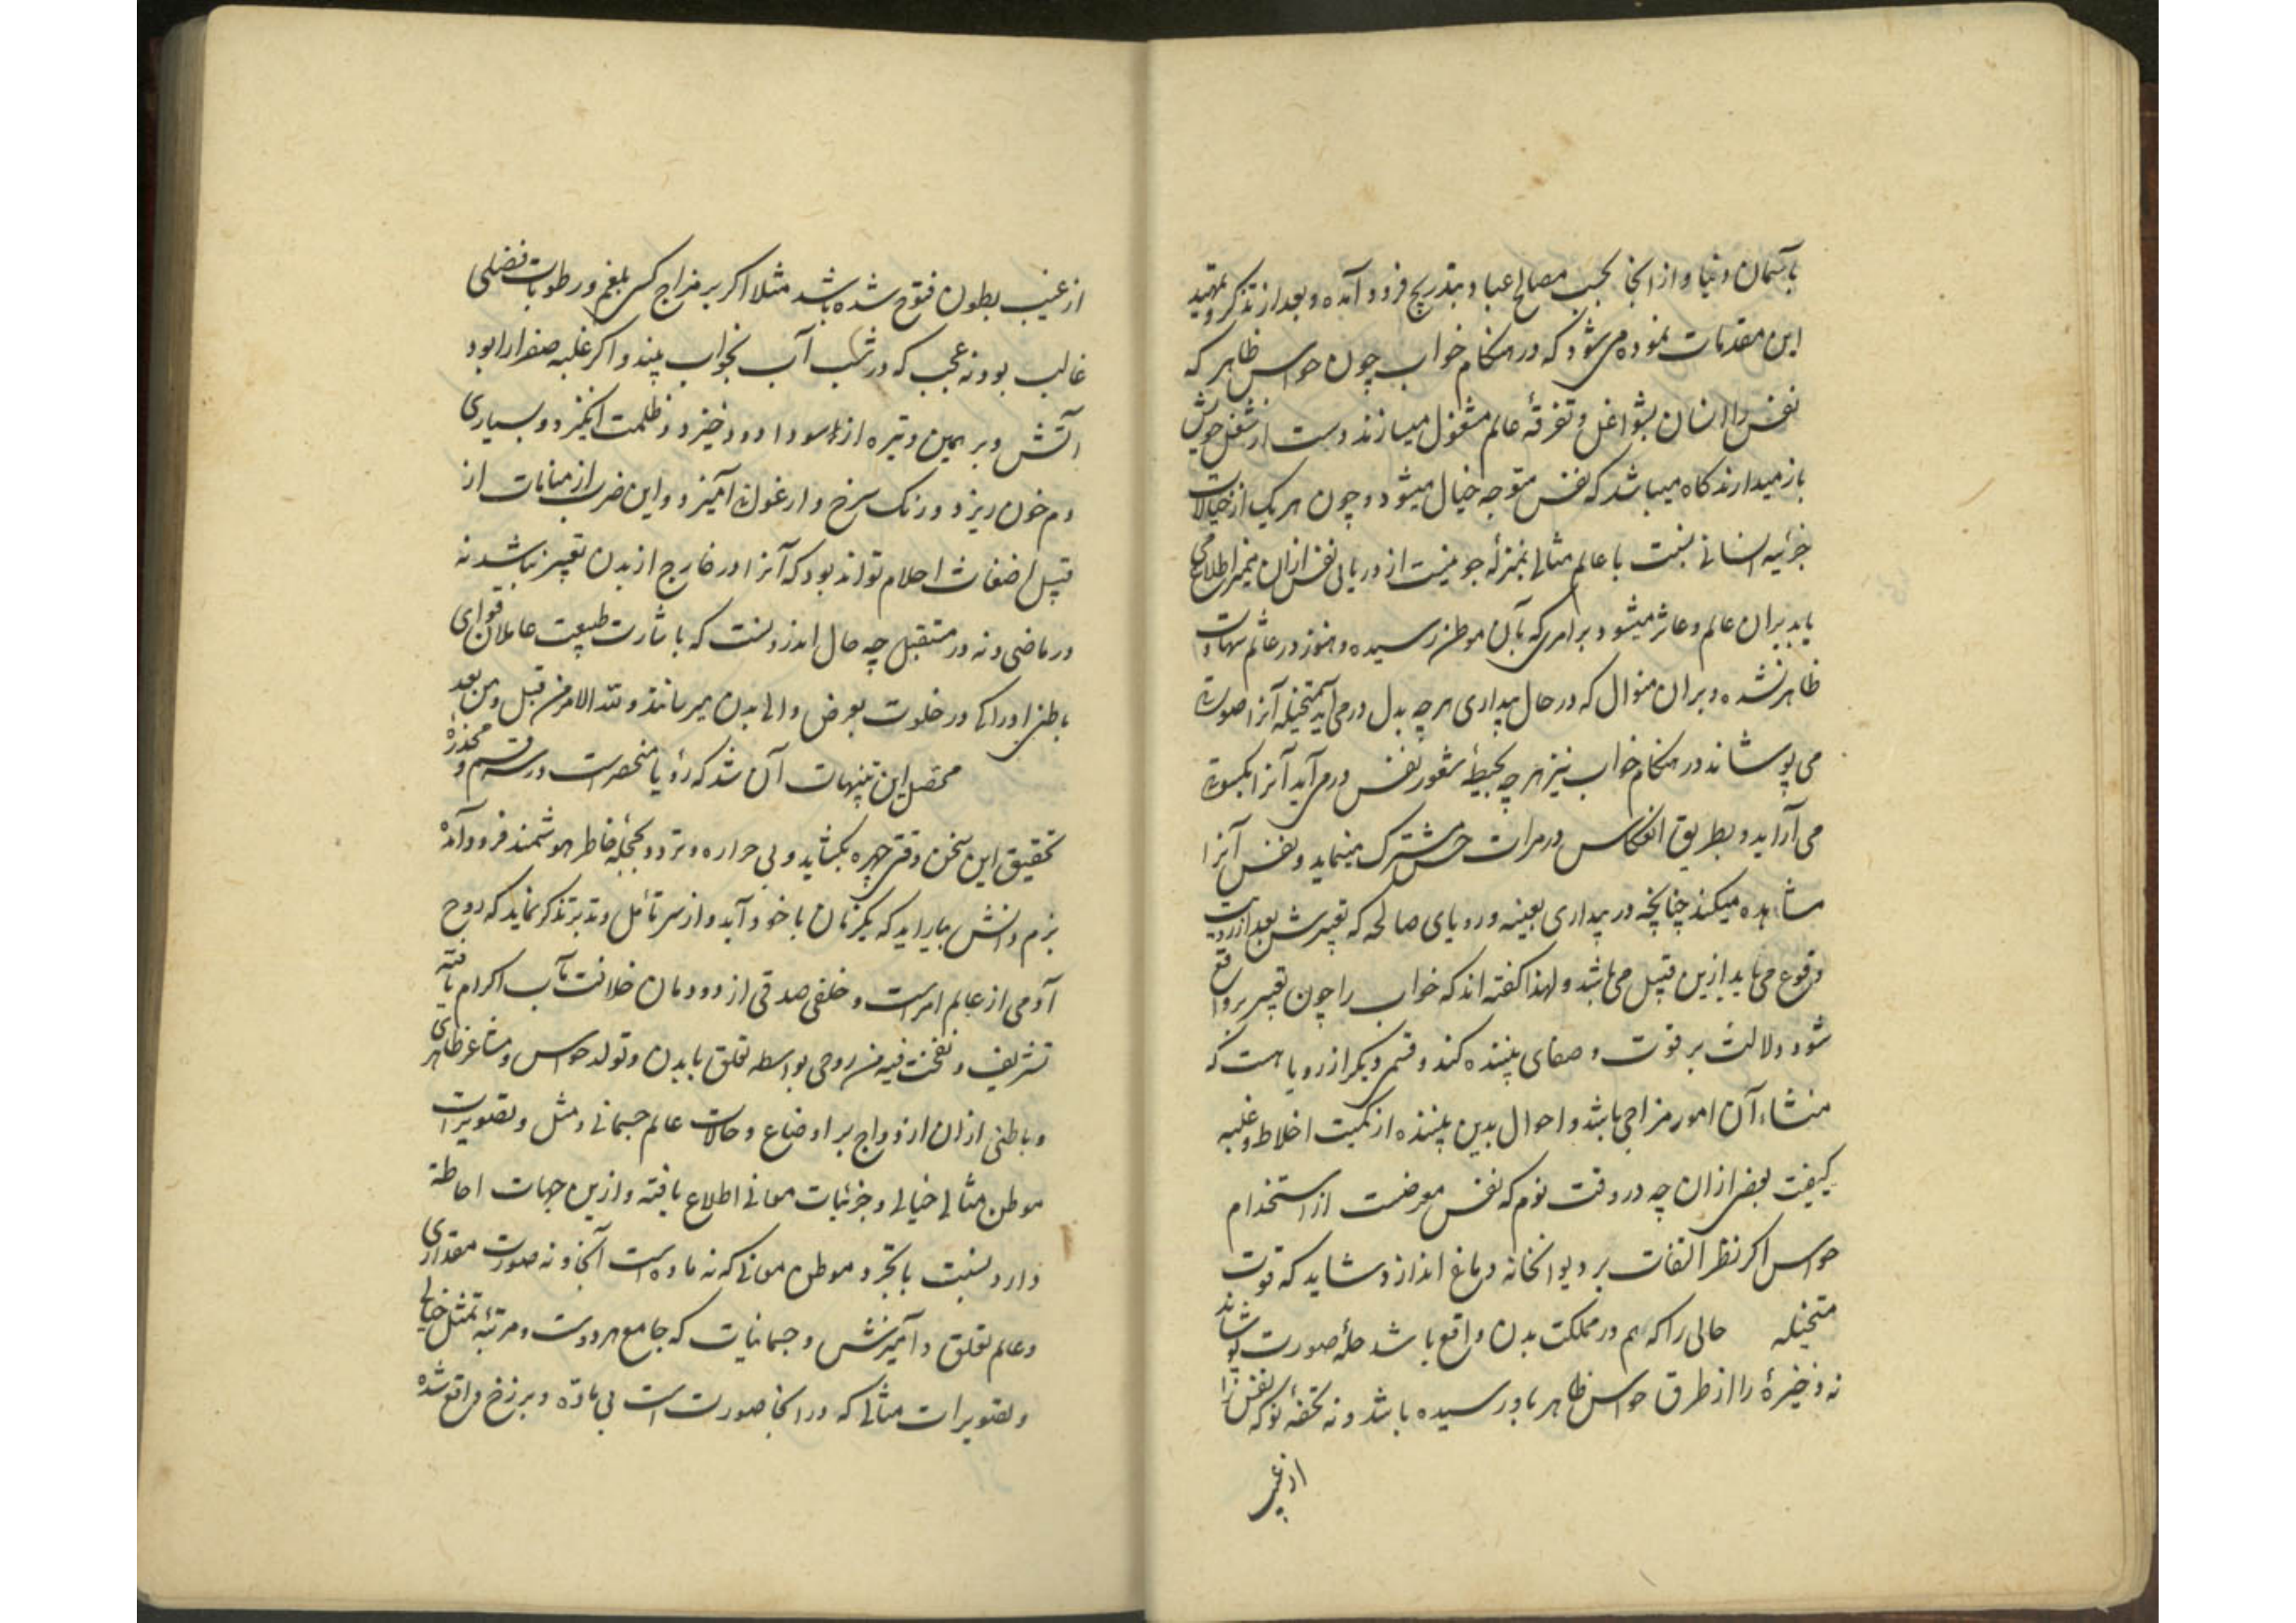 بآسمان دنیا و از انجا بحسب مصالح عباد بتدریج فرود آمده و بعد از تذکر و تمهید
این مقدمات نموده می شود که در هنکام خواب چون حواس ظاهر که
نفس را انسان بشواغل و تفرقهٔ عالم مشغول میسازند دست از شغل خویش
باز میدارند کاه میباشد که نفس متوجه خیال میشود و چون هر یک از خیالات
جزئیه انسانی بنسبت با عالم مثالی بمنزلهٔ جوئیست از دریائی نفس ازان ممر اطلاع می
یابد بران عالم و عاثر میشود بر امری که بآن موطن رسیده و هنوز در عالم شهادت
ظاهر نشده و بران منوال که در حال بیداری هر چه بدل در می آید متخیله آنرا صورت
می پوشاند در هنکام خواب نیز هر چه بحیطهٔ شعور نفس در می آید آنرا بکسوت
می آراید و بطریق انعکاس در مرات حس مشترک مینماید و نفس آنرا
مشاهده میکند چنانچه در بیداری بعینه و رویای صالحه که تعبیرش بعد از رویت
وقوع می یابد ازین قبیل می باشد و لهذا کفته اند که خواب را چون تعبیر بر واقع
شود دلالت بر قوت و صفای بیننده کند و قسم دیکر از رویا هست که
منشاء آن امور مزاجی باشد و احوال بدین بیننده از کمیت اخلاط و غلبه
کیفیت بعضی ازان چه در وقت نوم که نفس معرضست از استخدام
حواس اکر نظر التفات بر دیوانخانه دماغ اندازد شاید که قوت
متخیله حالی را که هم در مملکت بدن واقع باشد حلهٔ صورت پوشاند
نه ذخیرهٔ را از طرق حواس ظاهر باو رسیده باشد و نه تحفهٔ نو که نفس را
از غیب
از غیب بطون فتوح شده باشد مثلا اکر بر مزاج کسی بلغم و رطوبات فضلی
غالب بود نه عجب که در شب آب بخواب بیند و اکر غلبه صفرا را بود
آتش و بر همین وتیره از سودا دود خیزد و ظلمت انکیزد و بسیاری
دم خون ریزد و رنک سرخ و ارغوانی آمیزد و این ضرب از منامات از
قبیل اضغاث احلام تواند بود که آنرا در خارج از بدن تعبیر نباشد نه
در ماضی و نه در مستقبل چه حال اندرونست که باشارت طبیعت عاملان قوای
باطنی ادراکی در خلوت بعرض والی بدن میرسانند و لله الامر من قبل و من بعد
محصل این تنبیهات آن شد که رؤیا منحصرست در سه قسم و مخدرهٔ
تحقیق این سخن وقتی چهره بکشاید و بی حواره و تردد بحجلهٔ خاطر هوشمند فرود آمده
بزم دانش بیاراید که یکزمان با خود آید و از سر تأمل و تدبر تذکر نماید که روح
آدمی از عالم امرست و خلفی صدقی از دودمان خلافت مآب اکرام یافته
تشریف و نفخت فیه من روحی بواسطه تعلق بابدن و تولد حواس و مشاعر ظاهری
و باطنی ازان ازدواج بر اوضاع و حالات عالم جسمانی و مثل و تصویرات
موطن مثالی خیالی و جزئیات معانی اطلاع یافته و ازین جهات احاطهٔ
دارد بنسبت با تجرد موطن معانی که نه ماده است آنجا و نه صورت مقداری
و عالم تعلق و آمیزش و جسمانیات که جامع هر دوست و مرتبهٔ تمثل خیالی
و تصویرات مثالی که در انجا صورتست بی مادّه و برزخ واقع شده